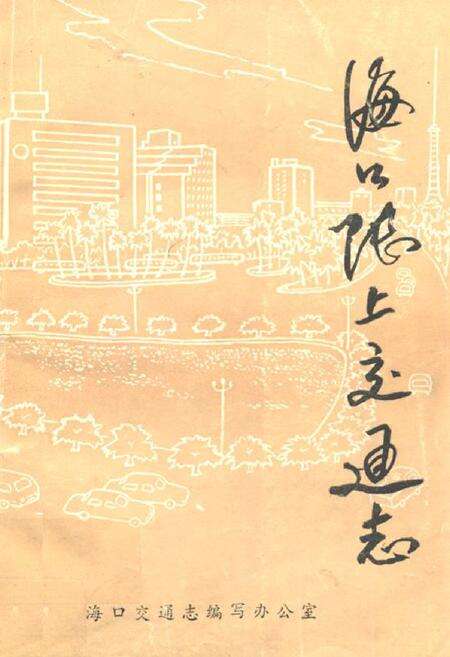 海口陆上交通志
海口交通志编写办公室